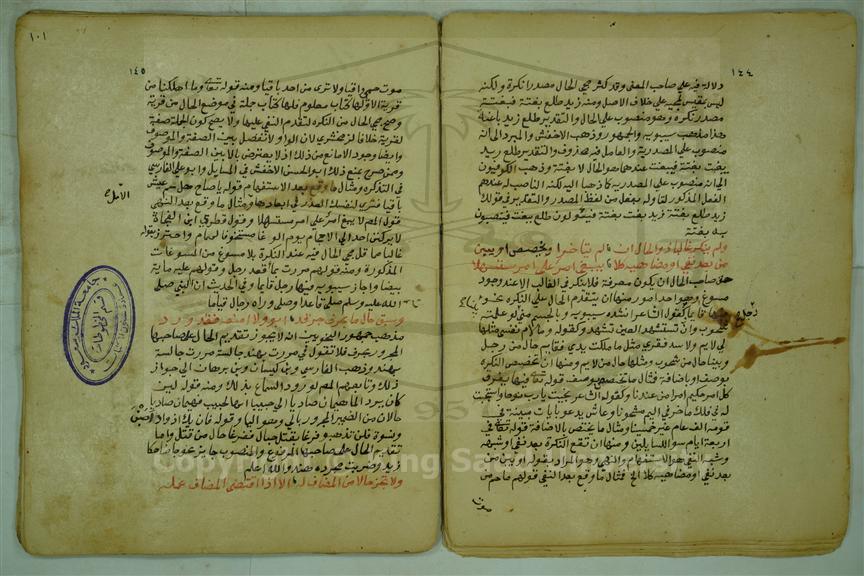 ١٤٤
دلالة فيه على صاحب المعنى وقد كثر مجي الحال مصدرا نكرة ولكنه
ليس بمقيس لمجيه على خلاف الاصل ومنه زيد طلع بغتة فبغتة
مصدر نكرة وهو منصوب على الحال والتقدير طلع زيد باغتا
هذا مذهب سيبويه والجمهور وذهب الاخفش والمبرد الى انه
منصوب على المصدرية والعامل فيه محذوف والتقدير طلع زيد
يبغت بغتة فيبغت عندهما هو الحال لا بغتة وذهب الكوفيون
الى انه منصوب على المصدرية كما ذهبا اليه لكن الناصب له عندهم
الفعل المذكور لتاوله بفعل من لفظ المصدر والتقدير في قولك
زيد طلع بغتة زيد بغت بغتة فيؤولون طلع ببغت وينصبون
به بغتة
ولم ينكر غالبا ذو الحال ان لم يتاخر او يخصص او يبن
من بعد نفي او مضاهيه كلا يبغ امرؤ على امرئ مستسهلا
حق صاحب الحال ان يكون معرفة فلا ينكر في الغالب الا عند وجود
مسوغ وهو احد امور منها ان يتقدم الحال على النكرة نحو
فيها قايما رجل وكقول الشاعر انشده سيبويه وبالجسم مني بينا لو علمته
شحوب وان تستشهدي العين تشهد وكقوله وما لام نفسي مثلها
لي لايم ولا سد فقري مثل ما ملكت يدي فقايم حال من رجل
وبينا حال من شحوب ومثلها حال من لايم ومنها ان تخصص النكرة
بوصف او اضافة فمثال ما تخصص بوصف قوله تعالى فيها يفرق
كل امر حكيم امرا من عندنا وكقول الشاعر نجيت يارب نوحا واستجبت
له في فلك ماخر في اليم مشحونا وعاش يدعو بايات مبينة في
قومه الف عام غير خمسينا ومثال ما تخصص بالاضافة قوله تعالى في
اربعة ايام سوا للسايلين ومنها ان تقع النكرة بعد نفي او شبهه
وشبه النفي هو الاستفهام والنهي وهو المراد بقوله او يبن من
بعد نفي او مضاهيه كلا الخ فمثال ما وقع بعد النفي قولهم ما حم من
موت
١٠١
١٤٥
موت حمى واقيا ولا ترى من احد باقيا ومنه قوله تعالى وما اهلكنا من
قرية الا ولها كتاب معلوم فلها كتاب جملة في موضع الحال من قرية
وصح مجي الحال من النكرة لتقدم النفي عليها ولا يصح كون الجملة صفة
لقرية خلافا لزمخشري لان الواو لا تفصل بين الصفة والموصوف
وايضا وجود الا مانع من ذلك اذ لا يعترض بالا بين الصفة والموصوف
وممن صرح بمنع ذلك ابو الحسن الاخفش في المسايل وابو علي الفارسي
في التذكرة ومثال ما وقع بعد الاستفهام قوله يا صاح هل حم عيش
باقيا فترى لنفسك العذر في ابعادها ومثال ما وقع بعد النهي
الاملا
قول المصم لا يبغ امرؤ على امرئ مستسهلا وقول قطري ابن الفجاة
لا يركنن احد الى الاحجام يوم الوغا متخوفا لحمام واحترز بقوله
غالبا مما قل مجي الحال فيه عند النكرة بلا مسوغ من المسوغات
المذكورة ومنه قولهم مررت بما قعدة رجل وقولهم عليه ماية
بيضا واجاز سيبويه فيها رجل قايما وفي الحديث ان النبي صلى
الله عليه وسلم صلى قاعدا وصلى وراه رجال قياما
وسبق حال ما بحرف جر قد ابوا ولا امنعه فقد ورد
مذهب جمهور النحويين انه لا يجوز تقديم الحال على صاحبها
المجرور بحرف فلا تقول في مررت بهند جالسة مررت جالسة
بهند وذهب الفارسي وابن كيسان وابن برهان الى جواز
ذلك وتابعهم المصم لورود السماع بذلك ومنه قوله لين
كان برد الما هيمان صاديا الي حبيبا انها لحبيب فهيمان صاديا
حالان من الضمير المجرور بالى وهو اليا وقوله فان يك اذواد اصبن
ونسوة فلن تذهبوا فرغا بقتل حبال ففرغا حال من قتل واما
تقديم الحال على صاحبها المرفوع والمنصوب جايز نحو جا ضاحكا
زيد وضربت مجردة هند والله اعلم
ولا تجز حالا من المضاف له الا اذا اقتضى المضاف عمله
جامعة الملك سعود
قسم المخطوطات
Copyright © King Saud University